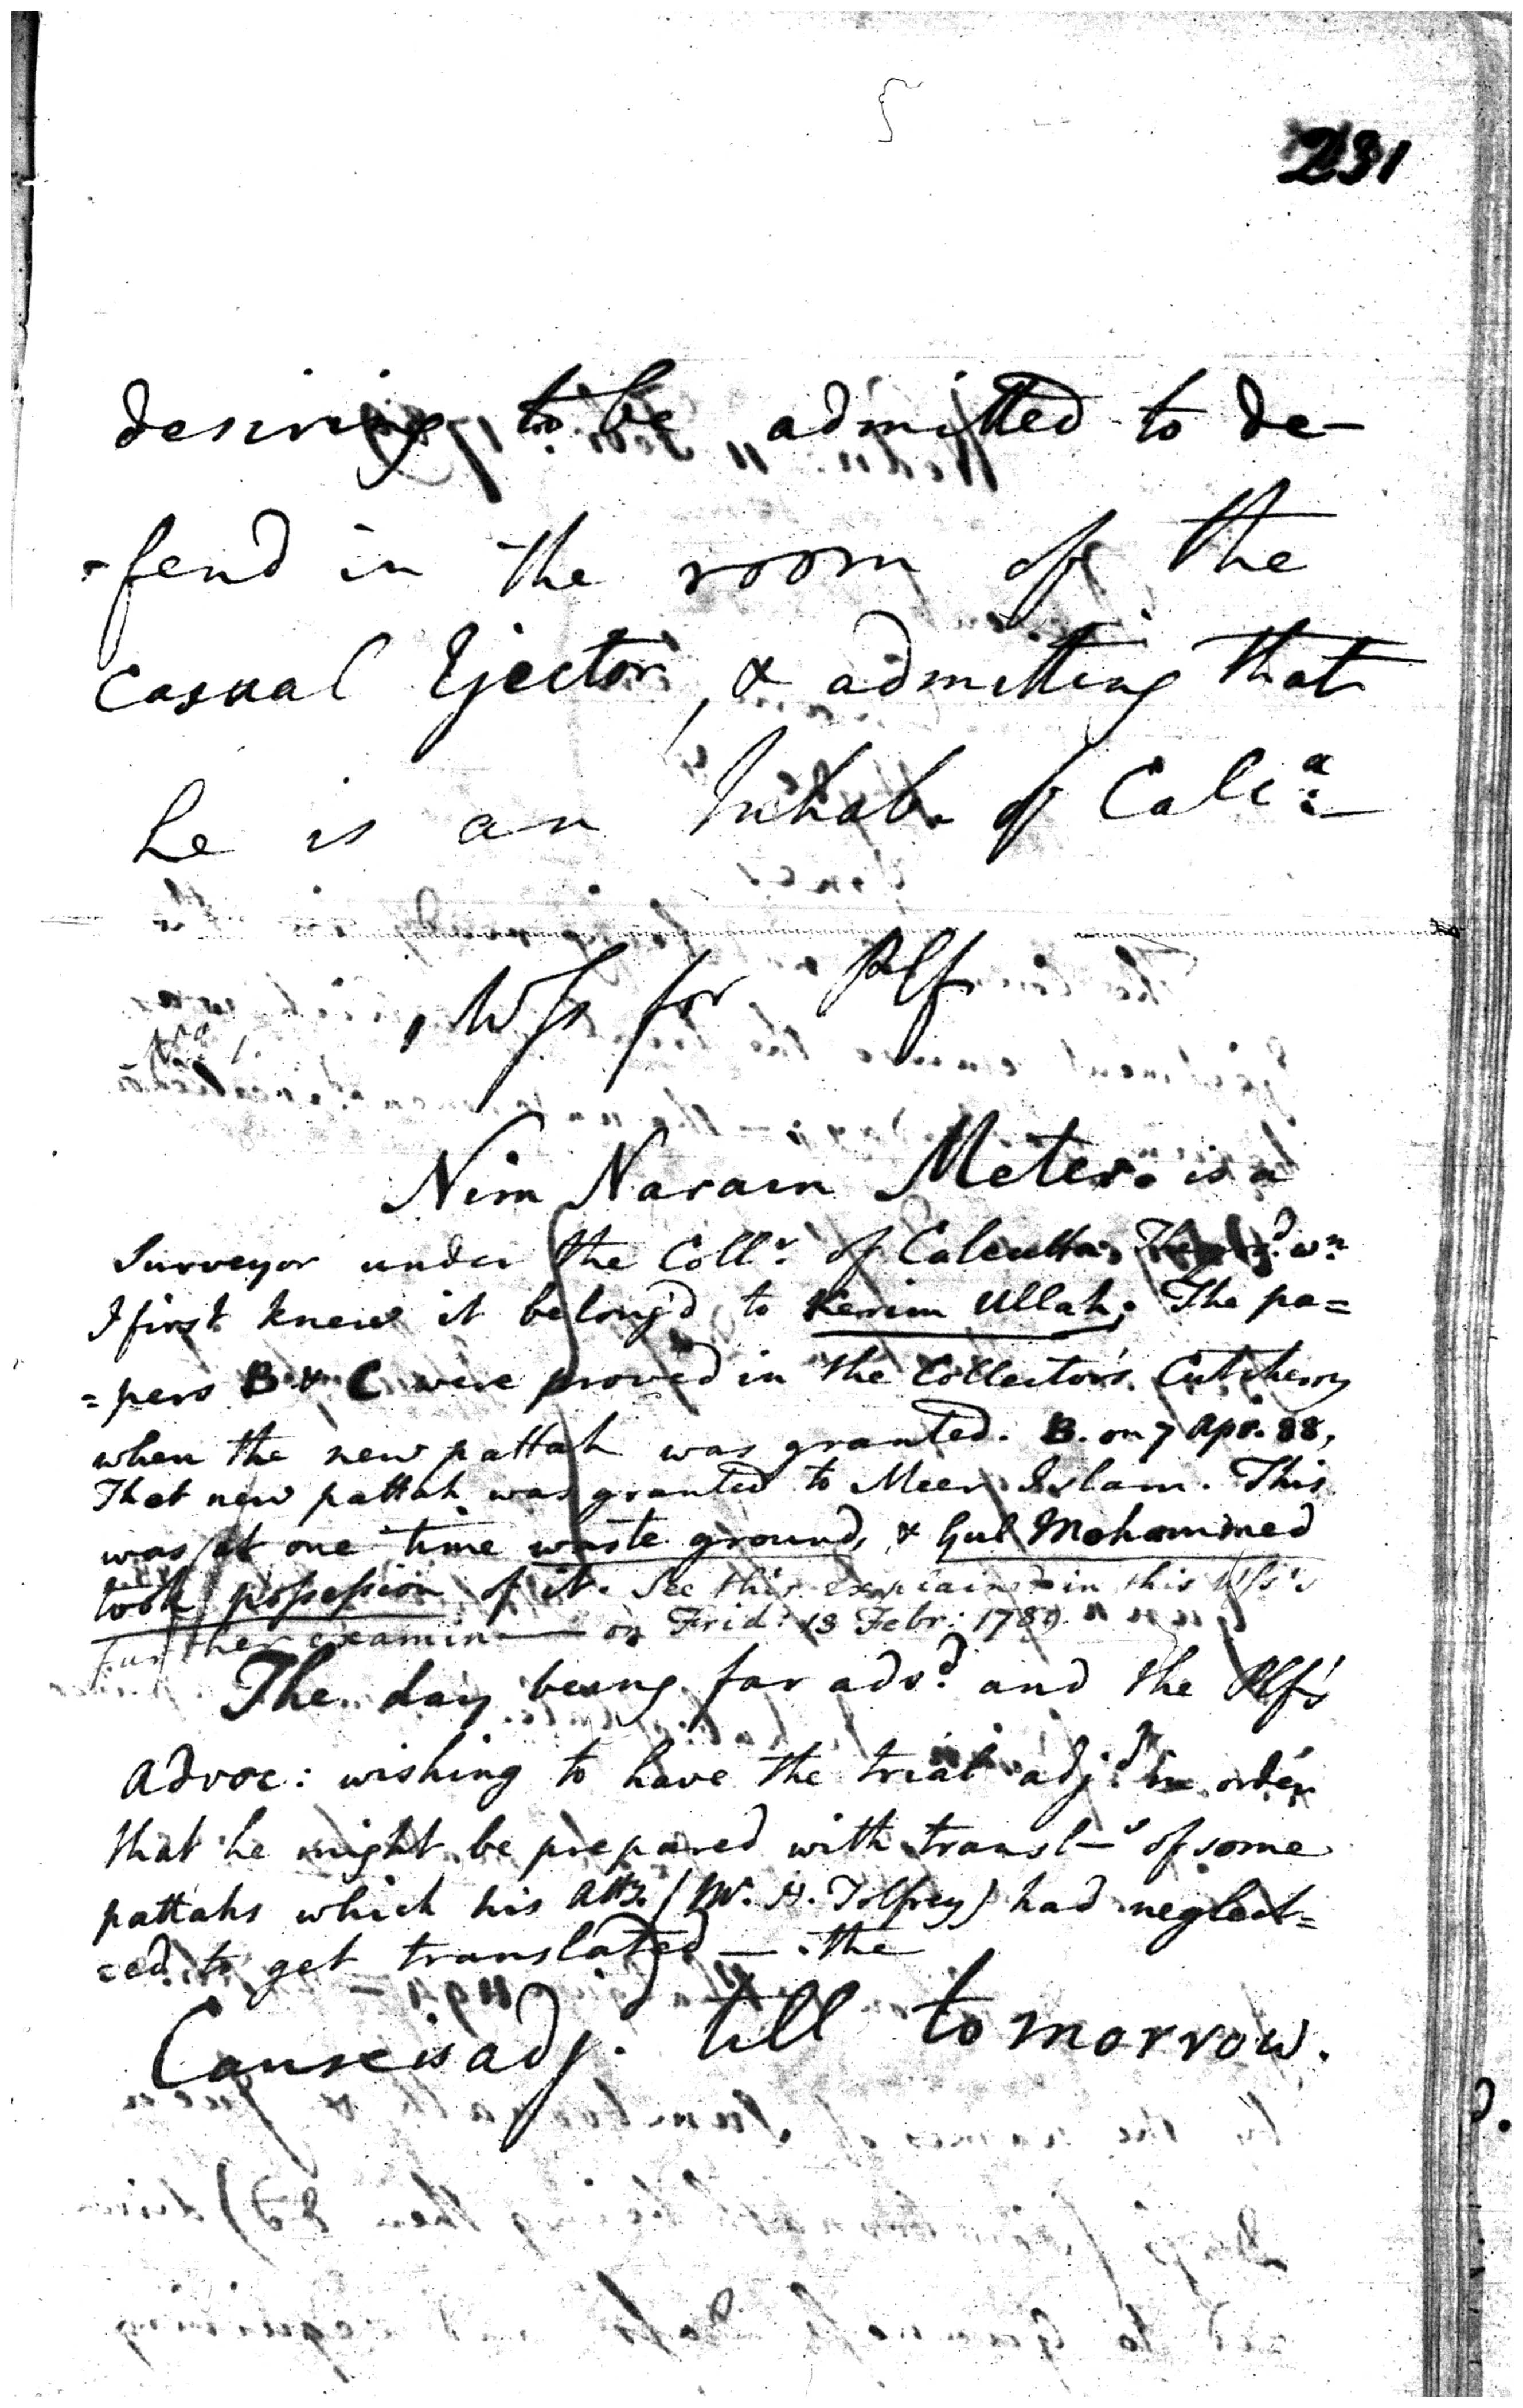 231
desiring to be admitted to de-
-fend in the room of the
Casual Ejector, & admitting that
he is an Inhab. of Calca:
Wss for Plf
No 1.
Nim Narain Meter. is a
Surveyor under the Collr. of Calcutta, The grd. wn
I first knew it belong'd to Kerim Ullah. The pa=
=pers B & C were proved in the Collector's Cutcherry
when the new pattah was granted. B. on 7 Apr. 88,
That new pattah was granted to Meer Islam. This
was at one time waste ground, & Gul Mohammed
took possession of it. See this explained in this Wss's
further examin— on Frid: 13 Febr: 1789.
The day being far advd. and the Plf's
Advoc: wishing to have the trial adjd. in order
that he might be prepared with transl—s of some
pattahs which his Atty. (Mr. H. Tolfrey) had neglect=
=ed to get translated — the
Cause is adj. till tomorrow.